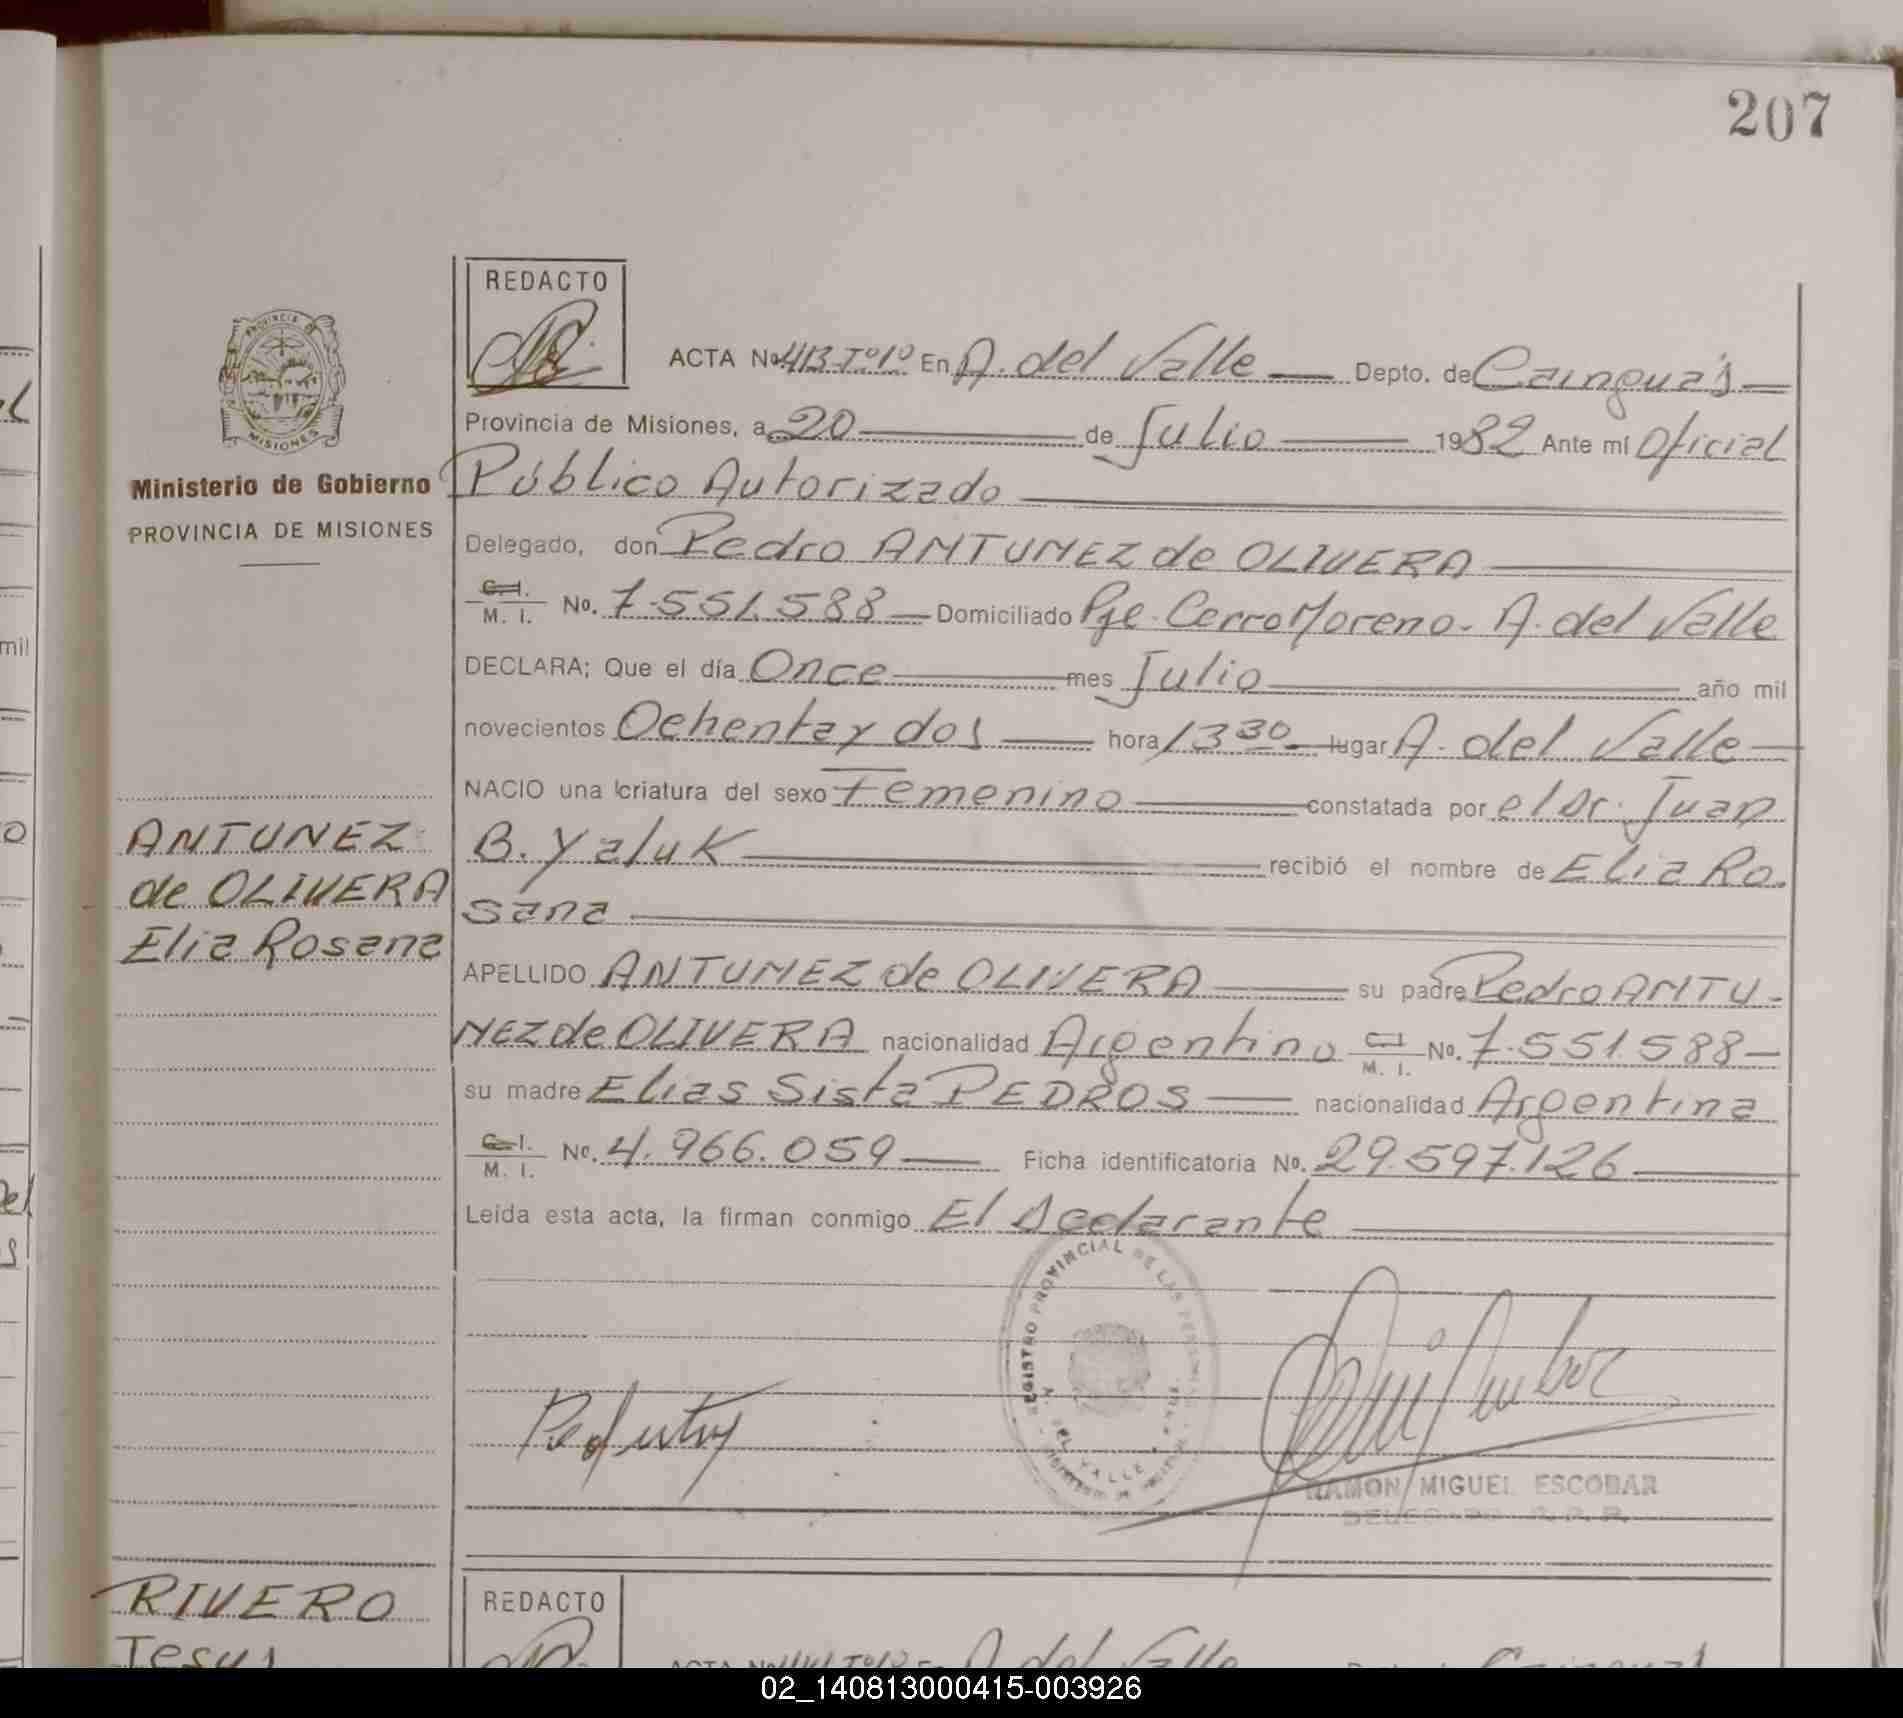 207
REDACTO
PROVINCIA DE
MISIONES
Ministerio de Gobierno
PROVINCIA DE MISIONES
ACTA No. 413-Tº1º En A. del Valle Depto. de Cainguá's
Provincia de Misiones, a 20 de Julio 1982 Ante mí Oficial
Público Autorizado
Delegado, don Pedro ANTUNEZ de OLIVERA
C. I.
M. I. No. 7.551.588 Domiciliado Pje. Cerro Moreno. A. del Valle
DECLARA; Que el día Once mes Julio año mil
novecientos Ochenta y dos hora 13 30 lugar A. del Valle
NACIO una criatura del sexo Femenino constatada por el Dr. Juan
B. Yaluk recibió el nombre de Elia Ro-
sana
ANTUNEZ
de OLIVERA
Elia Rosana
APELLIDO ANTUNEZ de OLIVERA su padre Pedro ANTU-
NEZ de OLIVERA nacionalidad Argentino C. I. M. I. No. 7.551.588
su madre Elias Sista PEDROS nacionalidad Argentina
C. I.
M. I. No. 4.966.059 Ficha identificatoria No. 29.597.126
Leída esta acta, la firman conmigo El Declarante
REGISTRO PROVINCIAL DE LAS PERSONAS
DEL VALLE
RAMON MIGUEL ESCOBAR
DELEGADO R. P. P.
RIVERO
Jesus
REDACTO
A. del Valle
mil
02_140813000415-003926